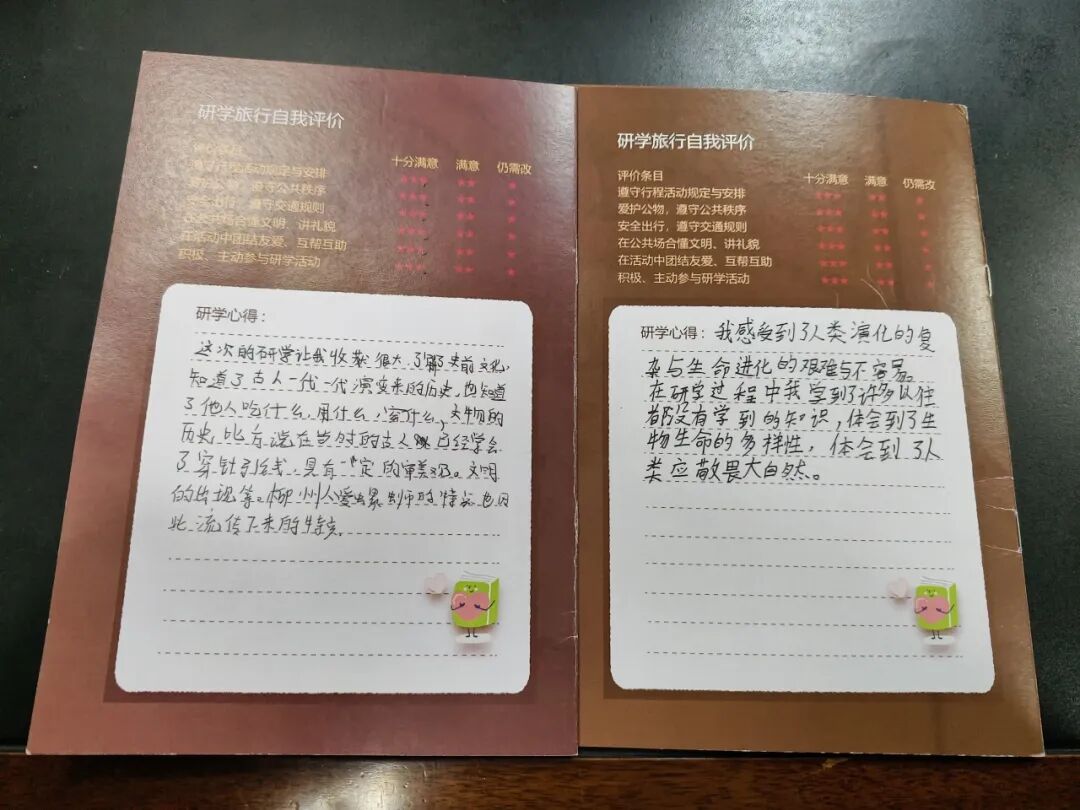 研学旅行自我评价
十分满意 满意 仍需改
遵守行程活动规定与安排 ★★★ ★★ ★
爱护公物，遵守公共秩序 ★★★ ★★ ★
安全出行，遵守交通规则 ★★★ ★★ ★
在公共场合懂文明、讲礼貌 ★★★ ★★ ★
在活动中团结友爱、互帮互助 ★★★ ★★ ★
积极、主动参与研学活动 ★★★ ★★ ★
研学心得：
这次的研学让我收获很大,了解了史前文化,
知道了古人一代一代演变来的历史,也知道
了他人吃什么,用什么,穿什么,文物的
历史,比方说在当时的古人已经学会
了穿针引线,具有一定的审美。文明
的出现等。柳州人爱螺蛳的特点也因
此流传下来的
研学旅行自我评价
评价条目 十分满意 满意 仍需改
遵守行程活动规定与安排 ★★★ ★★ ★
爱护公物，遵守公共秩序 ★★★ ★★ ★
安全出行，遵守交通规则 ★★★ ★★ ★
在公共场合懂文明、讲礼貌 ★★★ ★★ ★
在活动中团结友爱、互帮互助 ★★★ ★★ ★
积极、主动参与研学活动 ★★★ ★★ ★
研学心得：我感受到了人类演化的复
杂与生命进化的艰难与不容易。
在研学过程中我学到了许多以往
都没有学到的知识,体会到了生
物生命的多样性，体会到了人
类应敬畏大自然。